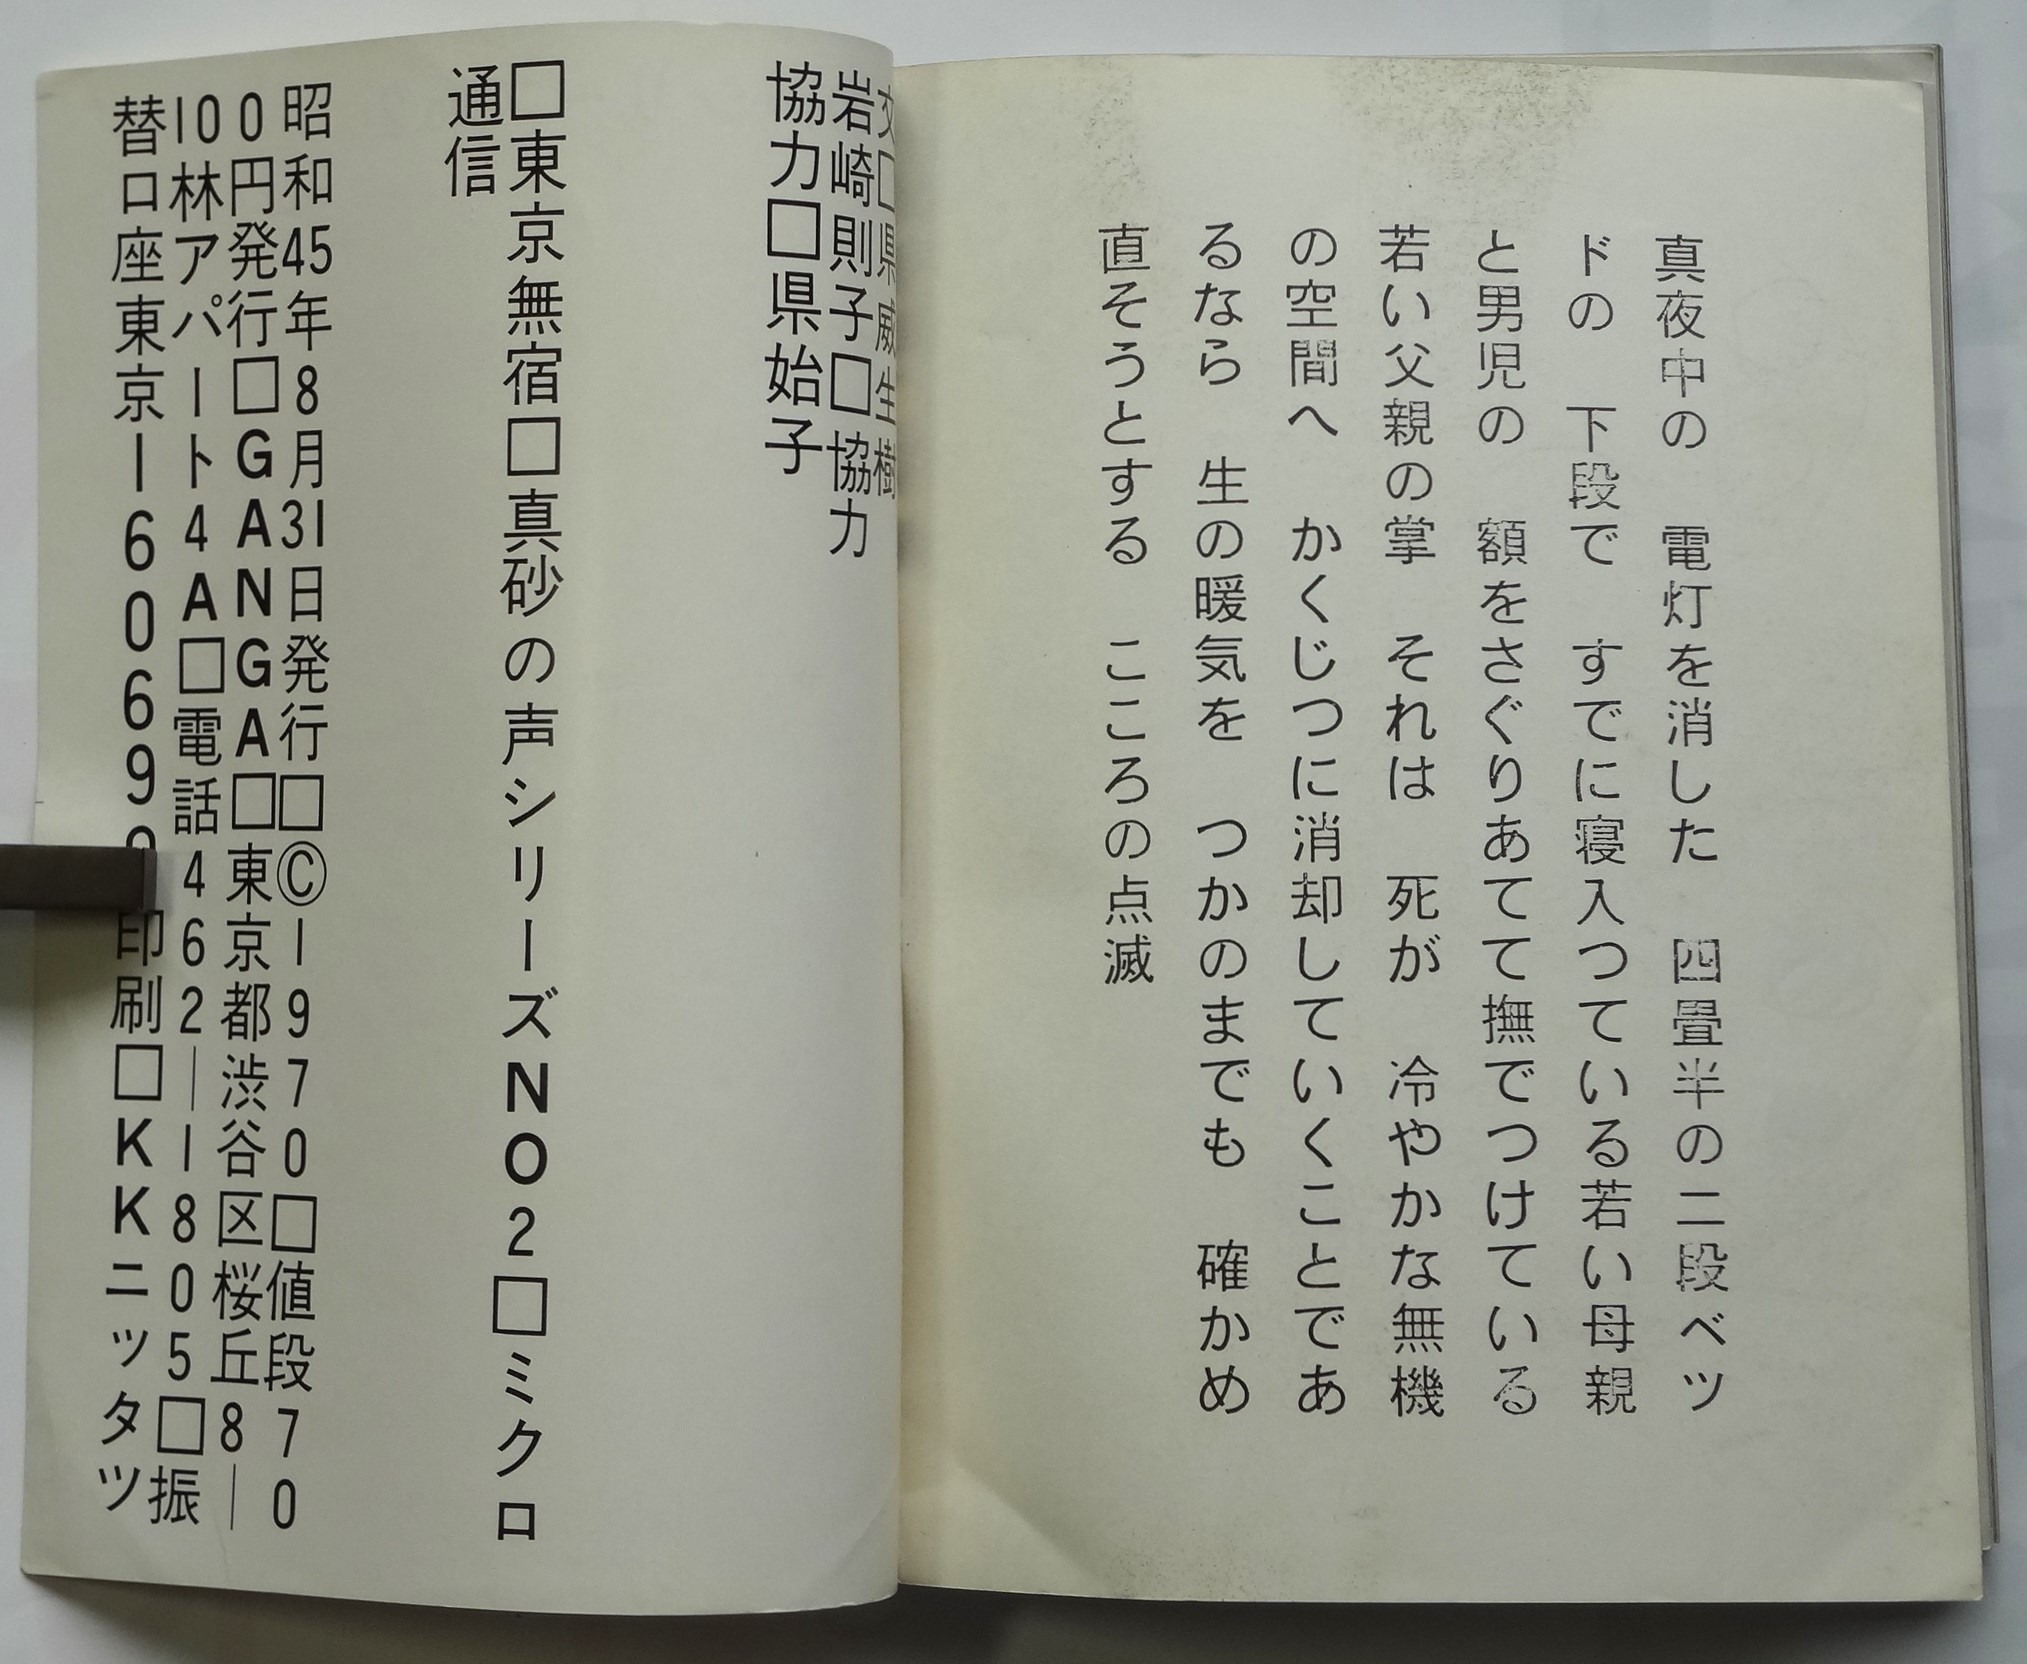 真夜中の　電灯を消した　四畳半の二段ベツ
ドの　下段で　すでに寝入つている若い母親
と男児の　額をさぐりあてて撫でつけている
若い父親の掌　それは　死が　冷やかな無機
の空間へ　かくじつに消却していくことであ
るなら　生の暖気を　つかのまでも　確かめ
直そうとする　こころの点滅
文□県威生樹
岩崎則子□協力
協力□県始子
□東京無宿□真砂の声シリーズNO2□ミクロ
通信
昭和45年8月31日発行□©1970□値段70
0円発行□GANGA□東京都渋谷区桜丘8—
10林アパート4A□電話462—1805□振
替口座東京—60699印刷□KKニッタツ